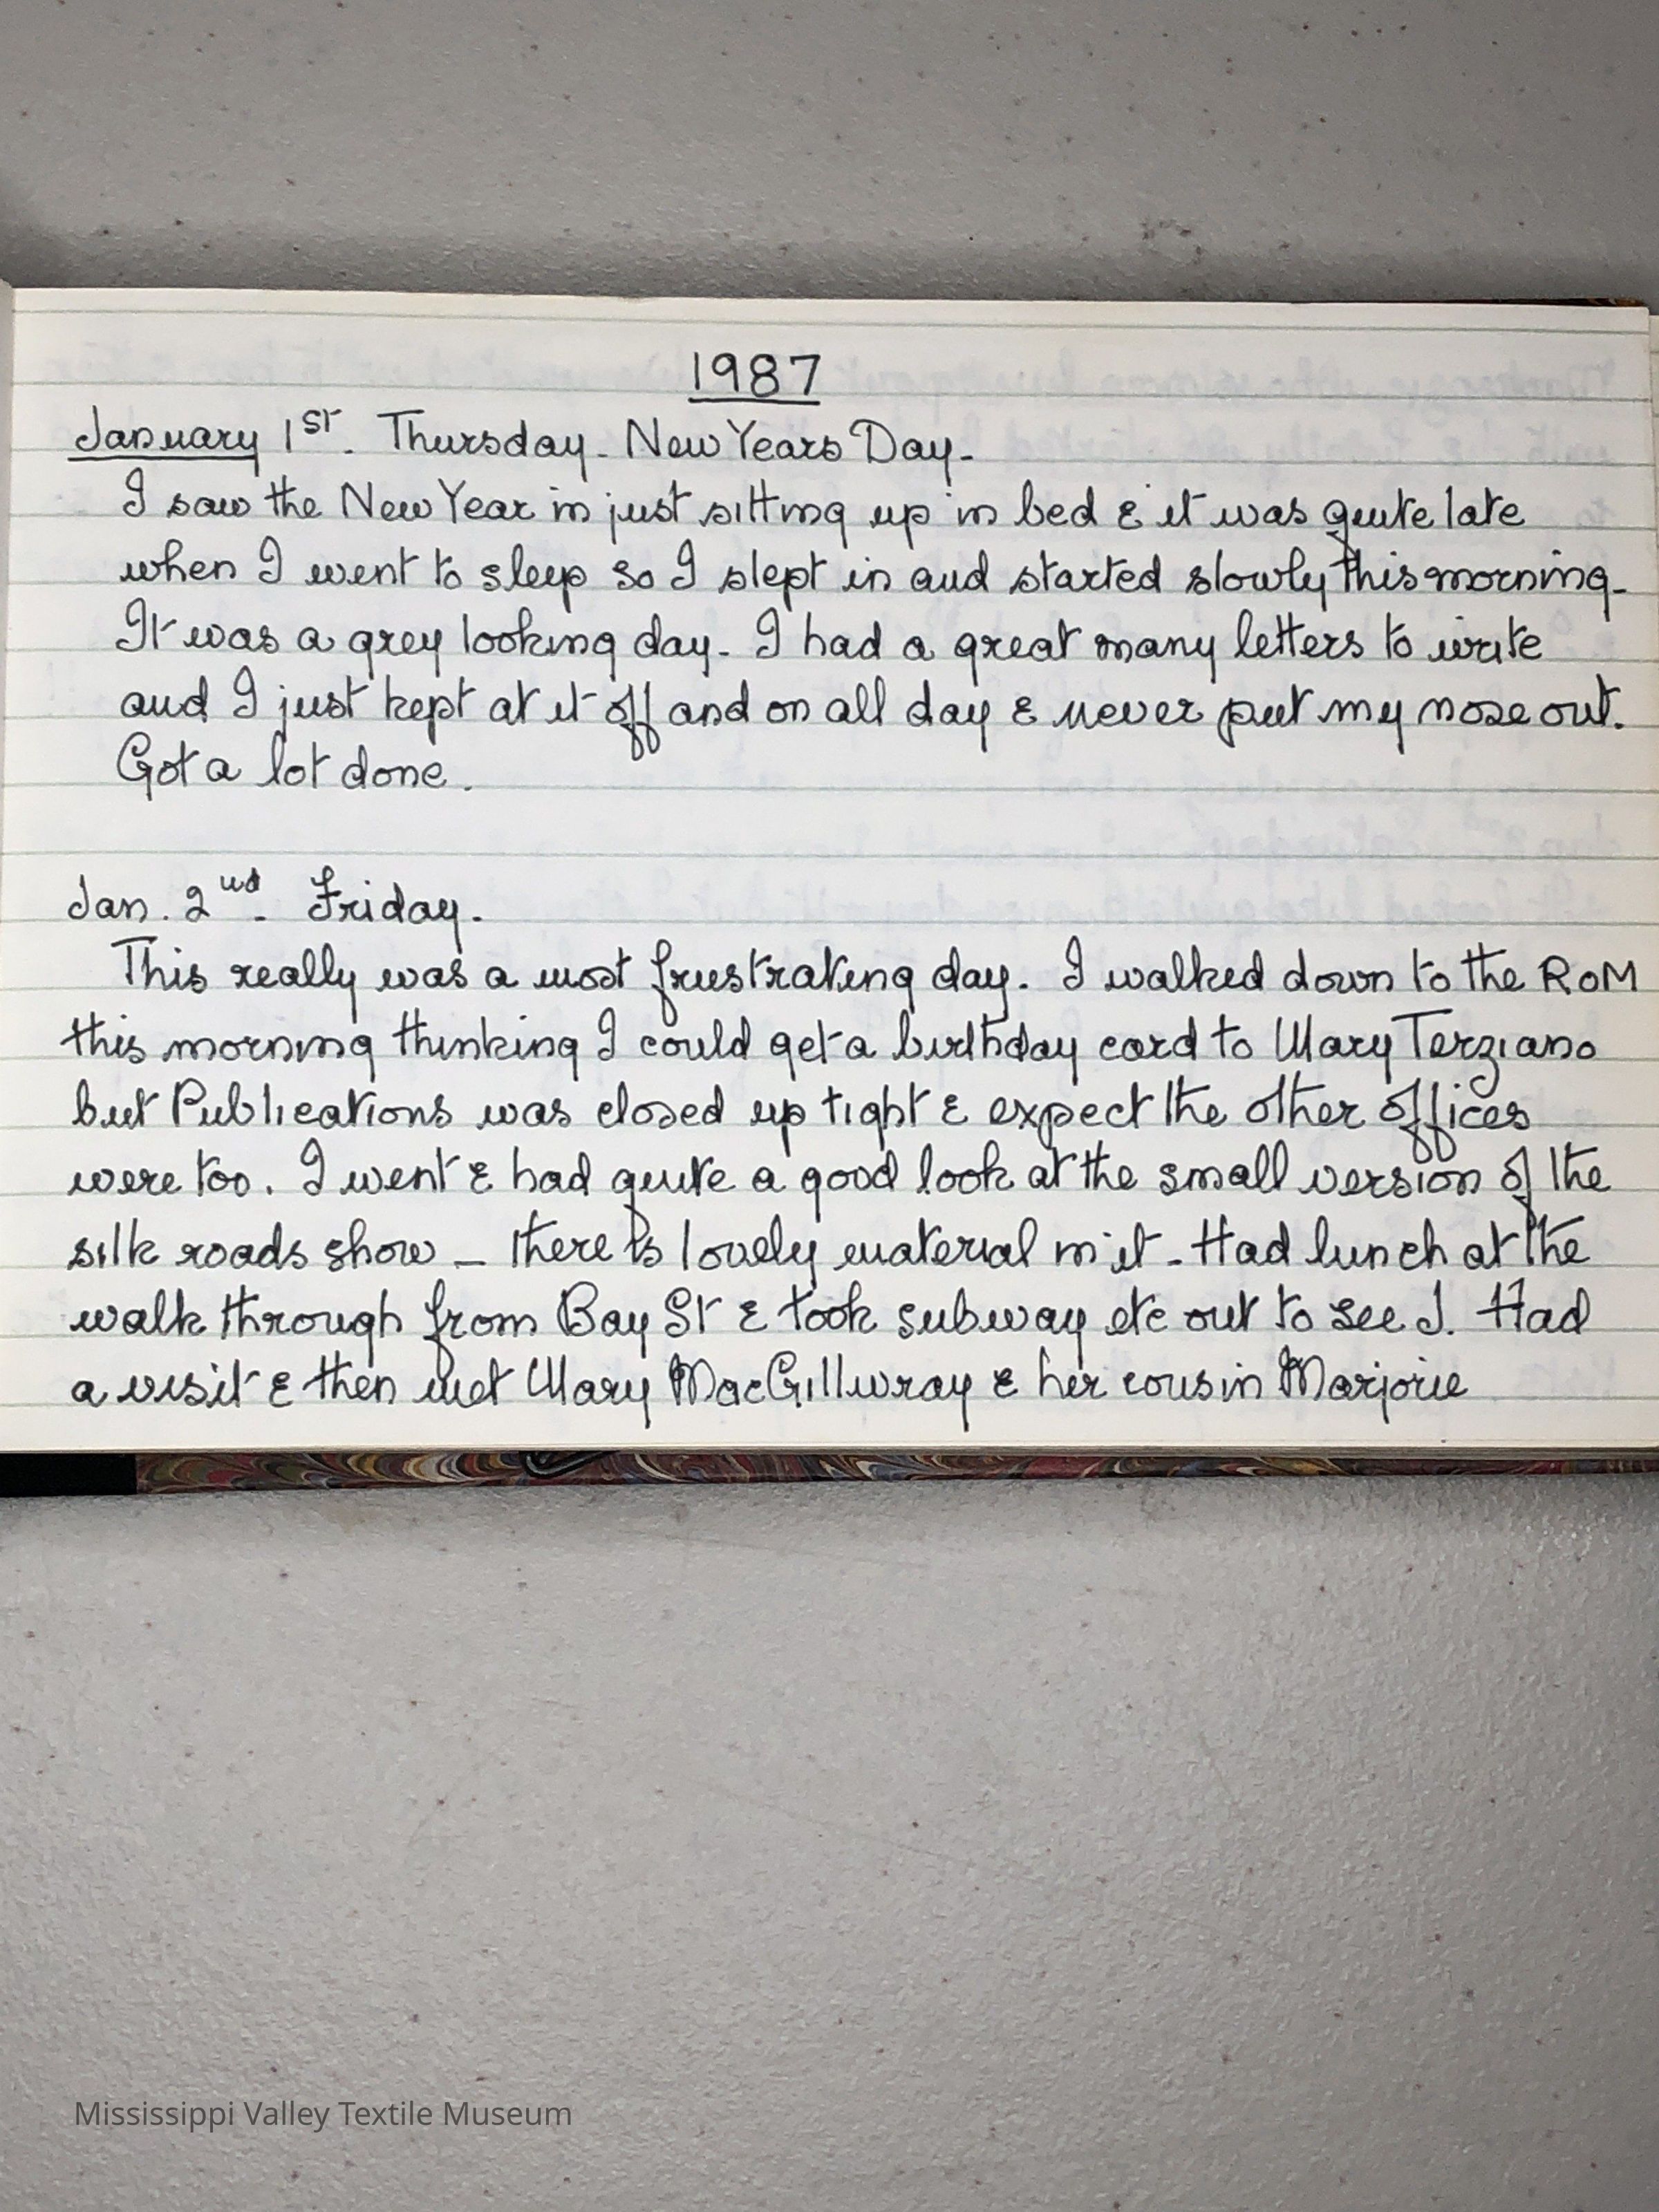 1987
January 1st. Thursday. New Years Day.
I saw the New Year in just sitting up in bed & it was quite late
when I went to sleep so I slept in and started slowly this morning.
It was a grey looking day. I had a great many letters to write
and I just kept at it off and on all day & never put my nose out.
Got a lot done.
Jan. 2nd. Friday.
This really was a most frustrating day. I walked down to the ROM
this morning thinking I could get a birthday card to Mary Terziano
but Publications was closed up tight & expect the other offices
were too. I went & had quite a good look at the small version of the
silk roads show _ there is lovely material in it - Had lunch at the
walk through from Bay St & took subway etc out to see J. Had
a visit & then met Mary MacGillivray & her cousin Marjorie
Mississippi Valley Textile Museum